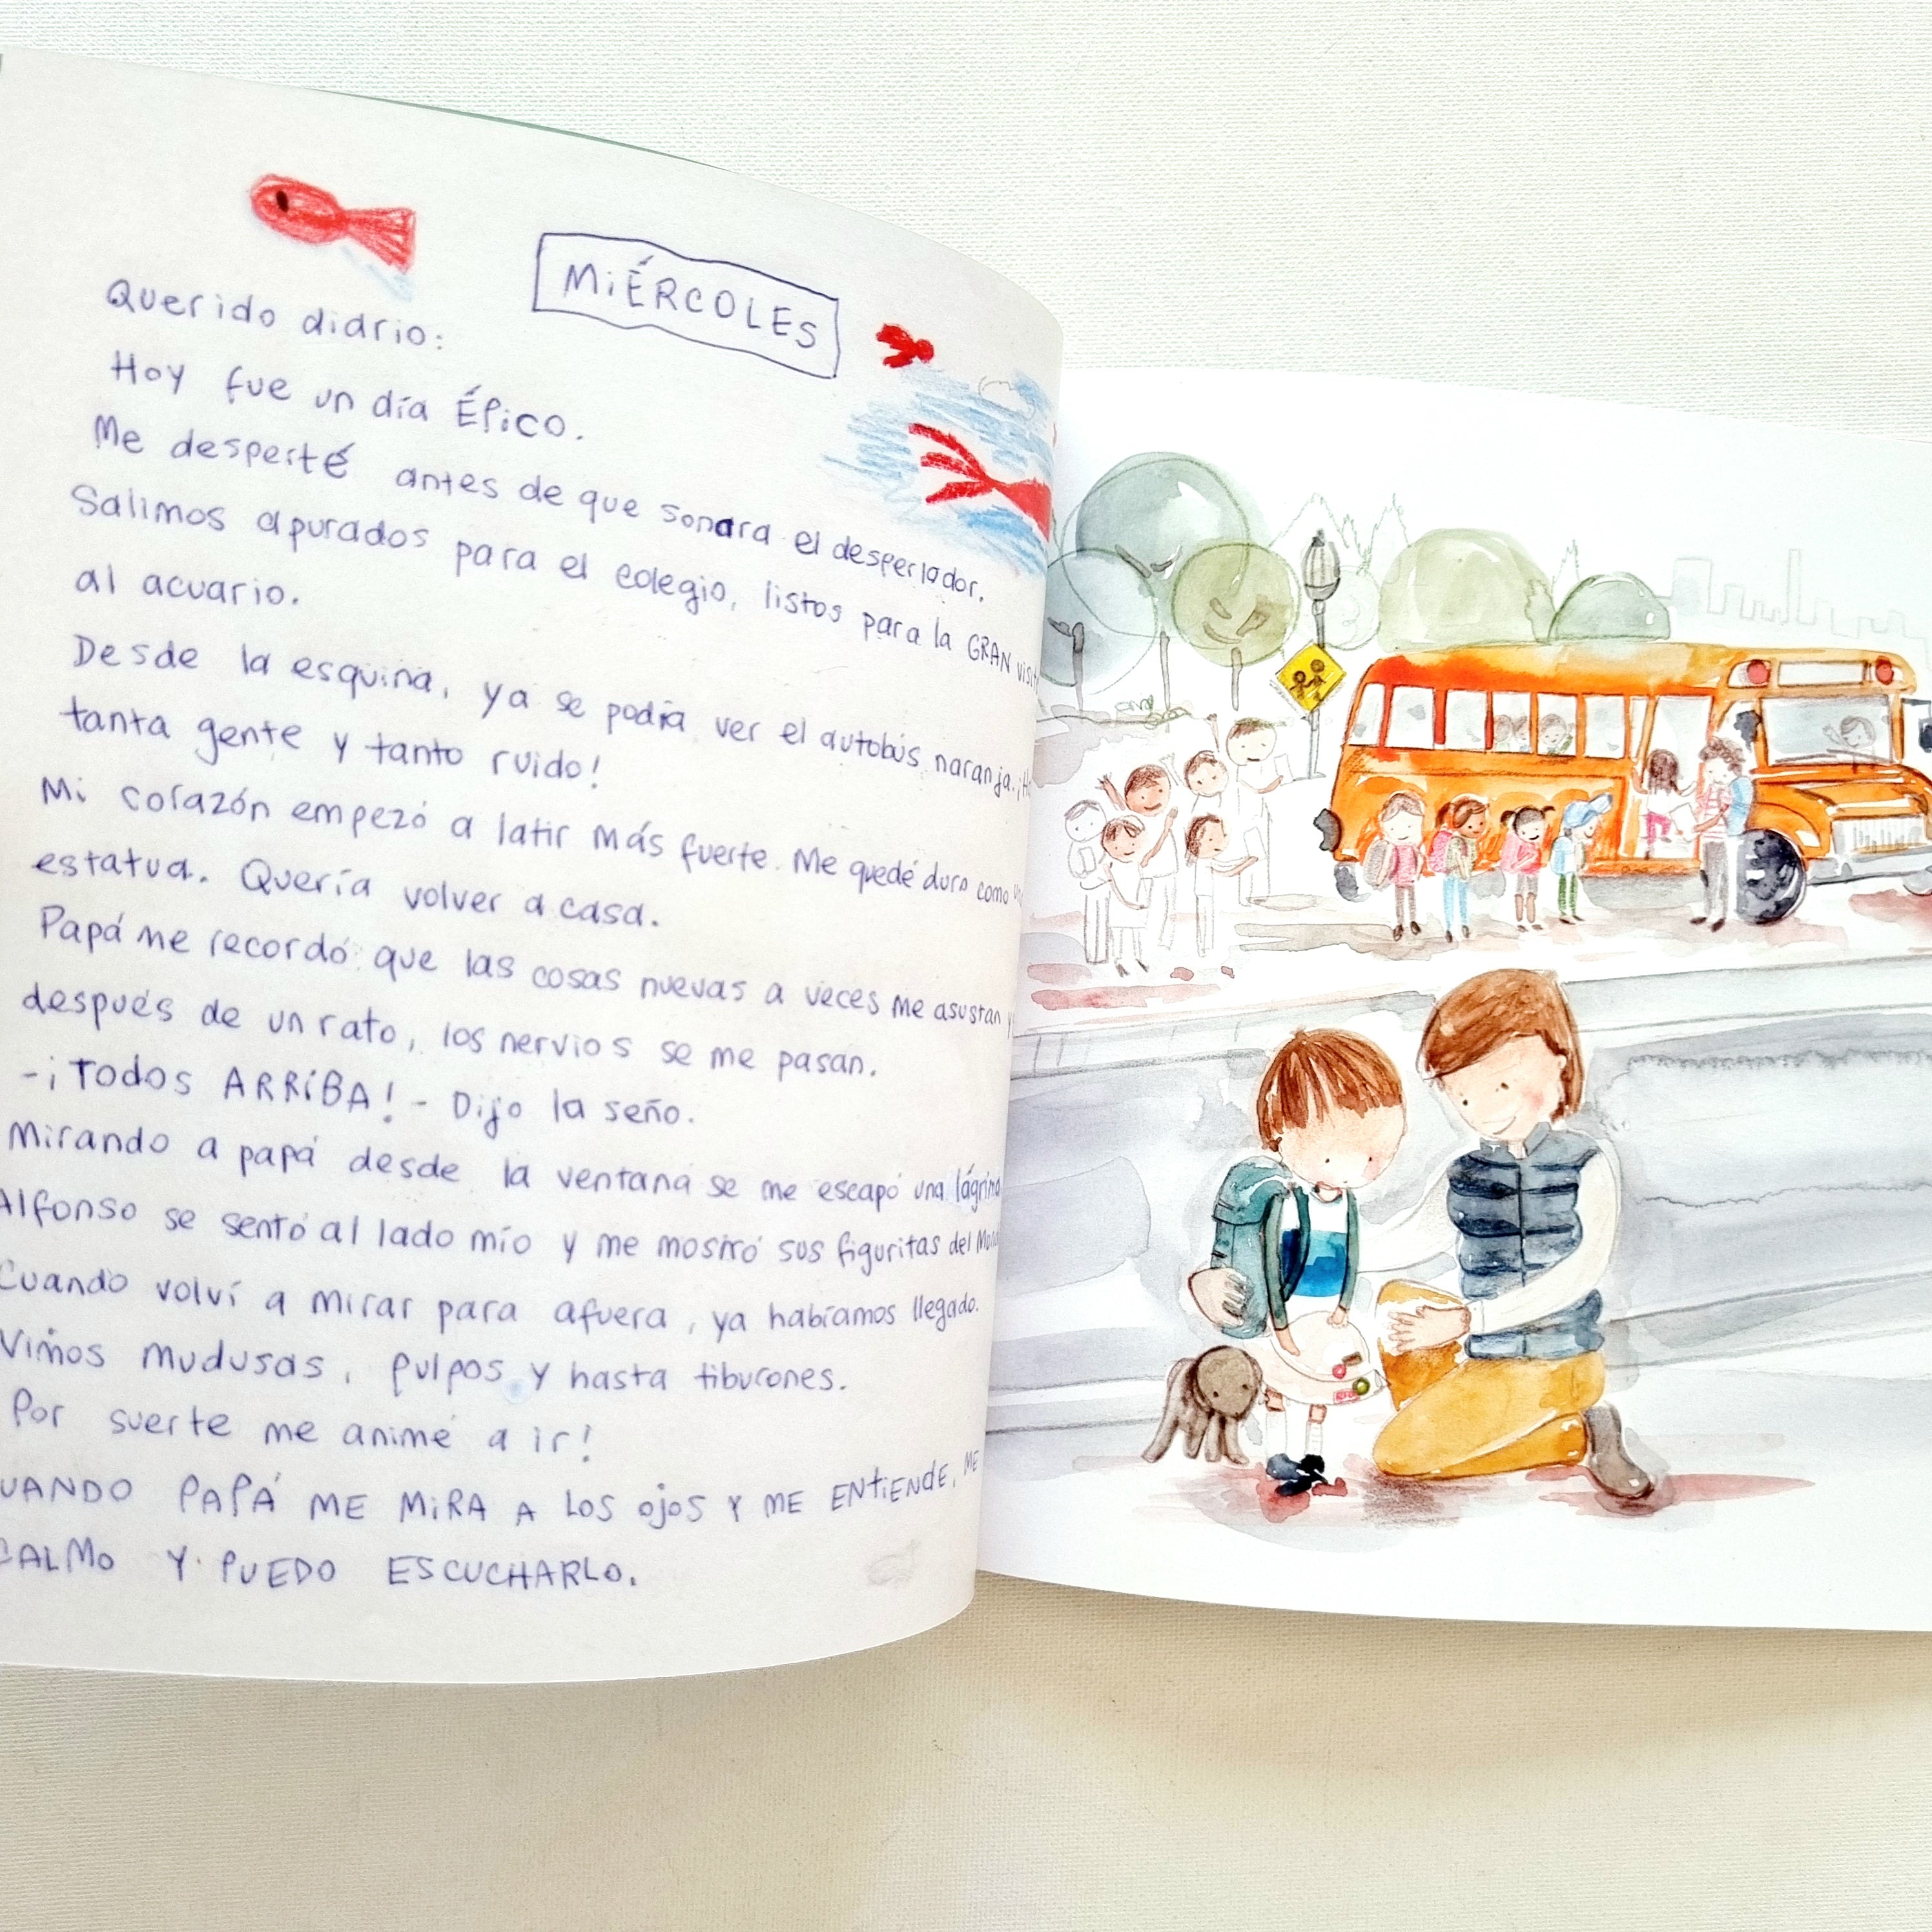 MIÉRCOLES
Querido diario:
Hoy fue un día ÉPico.
Me desperté antes de que sonara el despertador.
Salimos apurados para el colegio, listos para la GRAN
al acuario.
Desde la esquina, ya se podía ver el autobús naranja.
tanta gente y tanto ruido!
Mi corazón empezó a latir más fuerte. Me quedé duro como
estatua. Quería volver a casa.
Papá me recordó que las cosas nuevas a veces me asustan y
después de un rato, los nervios se me pasan.
-¡TODOS ARRIBA!- Dijo la seño.
Mirando a papá desde la ventana se me escapó una lágrima
Alfonso se sentó al lado mío y me mostró sus figuritas del
Cuando volví a mirar para afuera, ya habíamos llegado.
Vimos mudusas, pulpos y hasta tiburones.
Por suerte me animé a ir!
PAPÁ ME MIRA A LOS OJOS Y ME ENTIENDE, ME
CALMO Y PUEDO ESCUCHARLO.